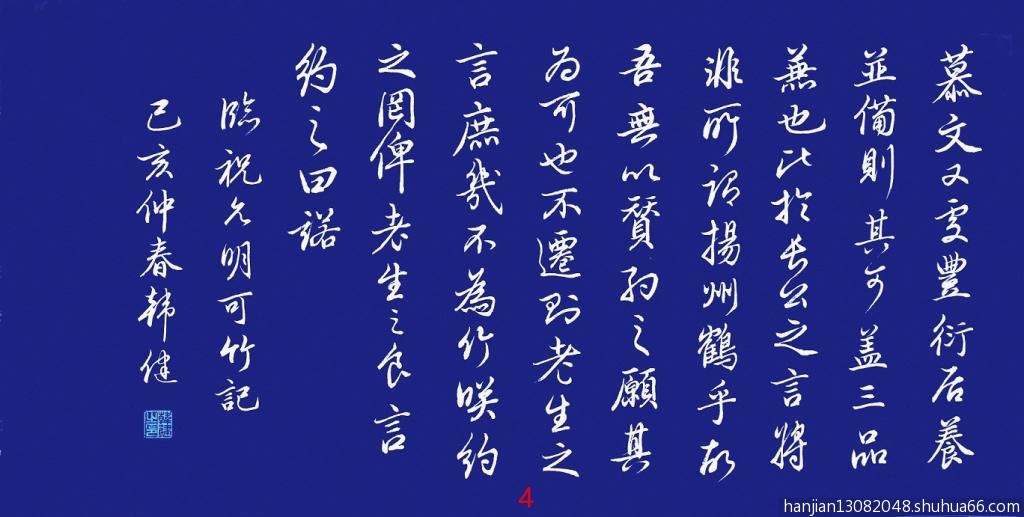 慕文又受豐衍居養
並備則其可蓋三品
兼也比於長公之言將
非所謂揚州鶴乎故
吾無以贊約之願其
為可也不遷到老生之
言庶幾不為竹咲約
之罔俾老生之食言
約之曰諾
臨祝允明可竹記
己亥仲春韩健
4
hanjian13082048.shuhua66.com